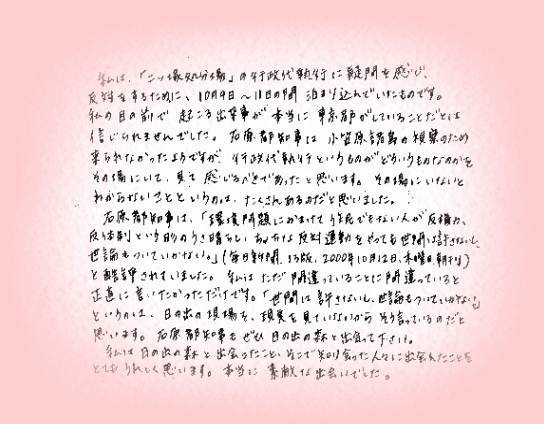 私は、「二ツ塚処分場」の行政代執行に疑問を感じ、
反対をするために、10月9日〜11日の間 泊まり込んでいたものです。
私の目の前で 起こる出来事が 本当に 東京都がしていることだとは
信じられませんでした。石原都知事は 小笠原諸島の視察のため
来られなかったようですが、行政代執行というものがどういうものなのかを
その場にいて、見て 感じるべきであったと思います。その場にいないと
わからないことというのは、たくさんあるのだと思いました。
石原都知事は、「環境問題にかまけて 住民でもない人が 反権力、
反体制という形のうさ晴らし あんな 反対運動をやっても世間は許さないし、
世論もついていかない。」(毎日新聞、13版、2000年10月12日、木曜日朝刊)
と酷評されていました。私はただ 間違っていることに間違っていると
正直に言いたかっただけです。「世間は許さないし、世論もついていかない。」
というのは、日の出の現場を、現実を見ていないから そう言っているのだと
思います。石原都知事もぜひ 日の出の森と出会って下さい。
私は日の出の森と出会ったこと、そこで知り合った人々に出会えたことを
とてもうれしく思います。本当に 素敵な出会いでした。